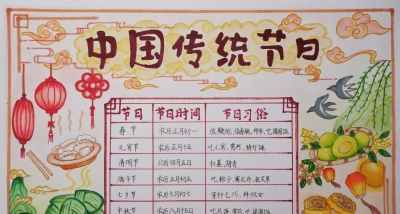 中国传统节日
节日 节日时间 节日习俗
春节 农历正月初一 放鞭炮、贴春联、拜年、吃团圆饭
元宵节 农历正月十五 吃元宵、赏灯、猜灯谜
清明节 公历四月五日 扫墓、踏青
端午节 农历五月初五
七夕节 农历七月初七 穿针乞巧、拜织女
中秋节 农历八月十五